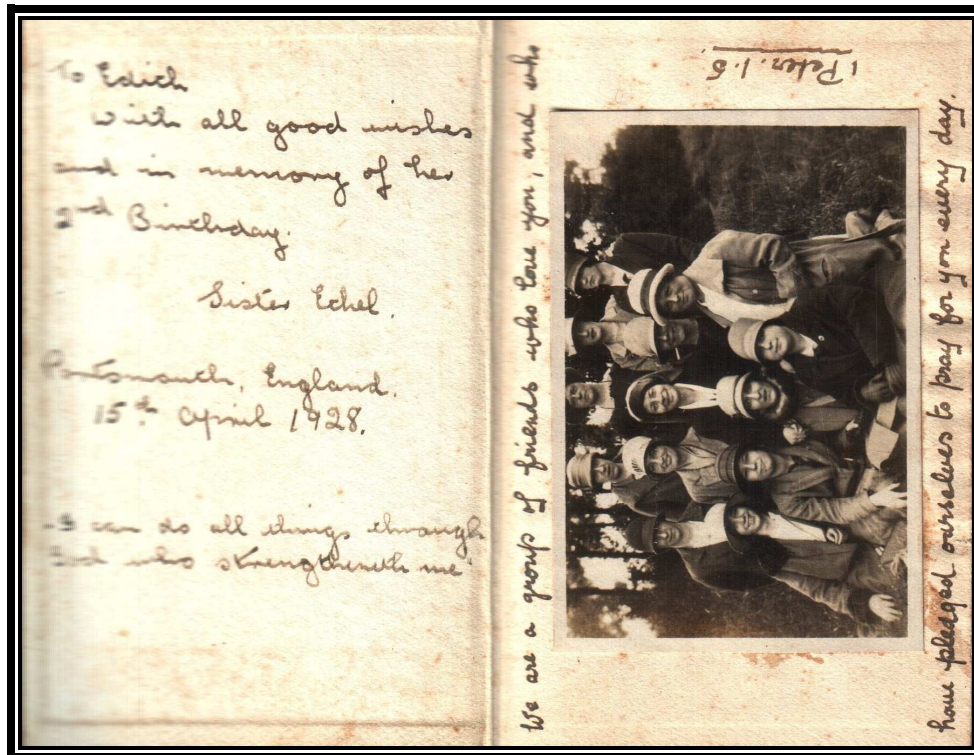 To Edith
With all good wishes
and in memory of her
2nd Birthday.
Sister Ethel.
Portsmouth, England.
15th April 1928.
I can do all things through
God who strengtheneth me
We are a group of friends who love you, and who
have pledged ourselves to pray for you every day.
1 Peter. 1.5.